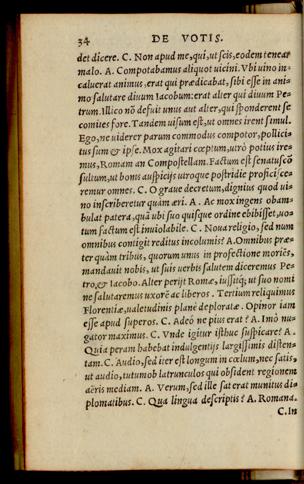 34 DE VOTIS.
det dicere. C. Non apud me, qui, ut scis, eodem tenear
malo. A. Compotabamus aliquot uicini. Vbi uino in-
caluerat animus, erat qui prædicabat, sibi esse in ani-
mo salutare diuum Iacobum: erat alter qui diuum Pe-
trum. Illico nõ defuit unus aut alter, qui spõnderent se
comites fore. Tandem uisum est, ut omnes irent simul.
Ego, ne uiderer parum commodus compotor, pollici-
tus sum & ipse. Mox agitari cœptum, utrò potius ire-
mus, Romam an Compostellam. Factum est senatuscõ
sultum, ut bonis auspicijs uiroque postridie proficisce-
remur omnes. C. O graue decretum, dignius quod ui-
no inscriberetur quàm æri. A. Ac mox ingens obam-
bulat patera, quã ubi suo quisque ordine ebibisset, uo-
tum factum est inuiolabile. C. Noua religio, sed num
omnibus contigit reditus incolumis? A. Omnibus præ-
ter quàm tribus, quorum unus in profectione moriẽs,
mandauit nobis, ut suis uerbis salutem diceremus Pe-
tro, & Iacobo. Alter perijt Romæ, iussitq; ut suo nomi
ne salutaremus uxorẽ ac liberos. Tertium reliquimus
Florentiæ, ualetudinis planè deploratæ. Opinor iam
esse apud superos. C. Adeò ne pius erat? A. Imò nu-
gator maximus. C. Vnde igitur isthuc suspicare? A.
Quia peram habebat indulgentijs largissimis disten-
tam. C. Audio, sed iter est longum in cœlum, nec satis,
ut audio, tutum ob latrunculos qui obsident regionem
aëris mediam. A. Verum, sed ille sat erat munitus di-
plomatibus. C. Qua lingua descriptis? A. Romana.
C. In